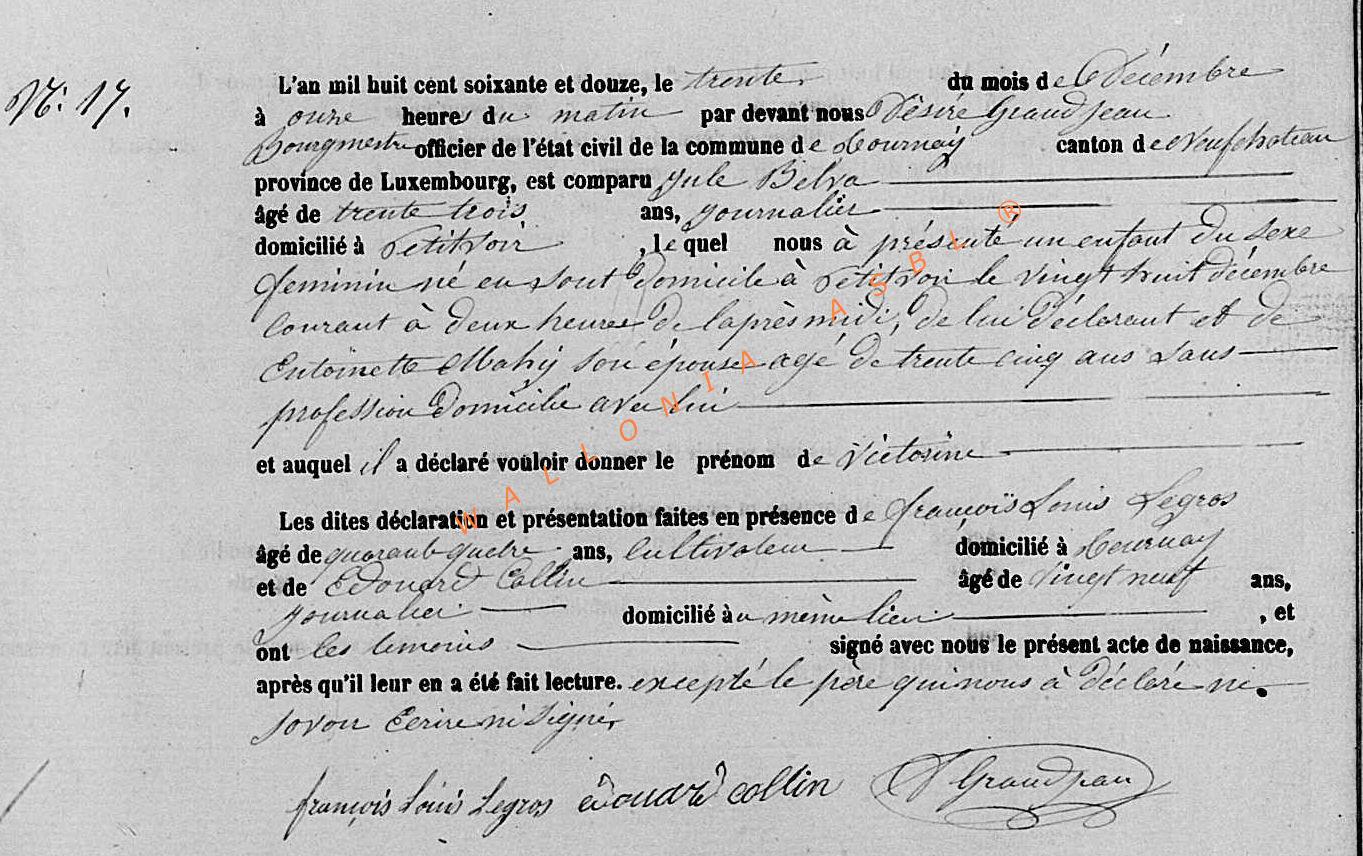 N°: 17.
L'an mil huit cent soixante et douze, le trente du mois de Décembre
à onze heures du matin par devant nous Désiré Grandjean
Bourgmestre officier de l'état civil de la commune de tournay canton de neufchateau
province de Luxembourg, est comparu Jule Belva
âgé de trente trois ans, journalier
domicilié à Petitvoir, lequel nous à présenté un enfant du sexe
feminin né en sont domicile à Petitvoir le vingt huit décembre
courant à deux heures de laprès midi, de lui déclarant et de
Entoinette Mahy son épouse agé de trente cinq ans sans
profession domicilie avec lui
et auquel il a déclaré vouloir donner le prénom de Victorine
Les dites déclaration et présentation faites en présence de françois Louis Legros
âgé de quarante quatre ans, Cultivateur domicilié à tournay
et de Edouard Collin âgé de vingt neuf ans,
journalier domicilié au même lieu, et
ont les temoins signé avec nous le présent acte de naissance,
après qu'il leur en a été fait lecture. excepté le père qui nous à déclaré ne
savoir Ecrire ni signé.
françois Louis Legros édouard collin D Grandjean
WALLONIA ASBL ®